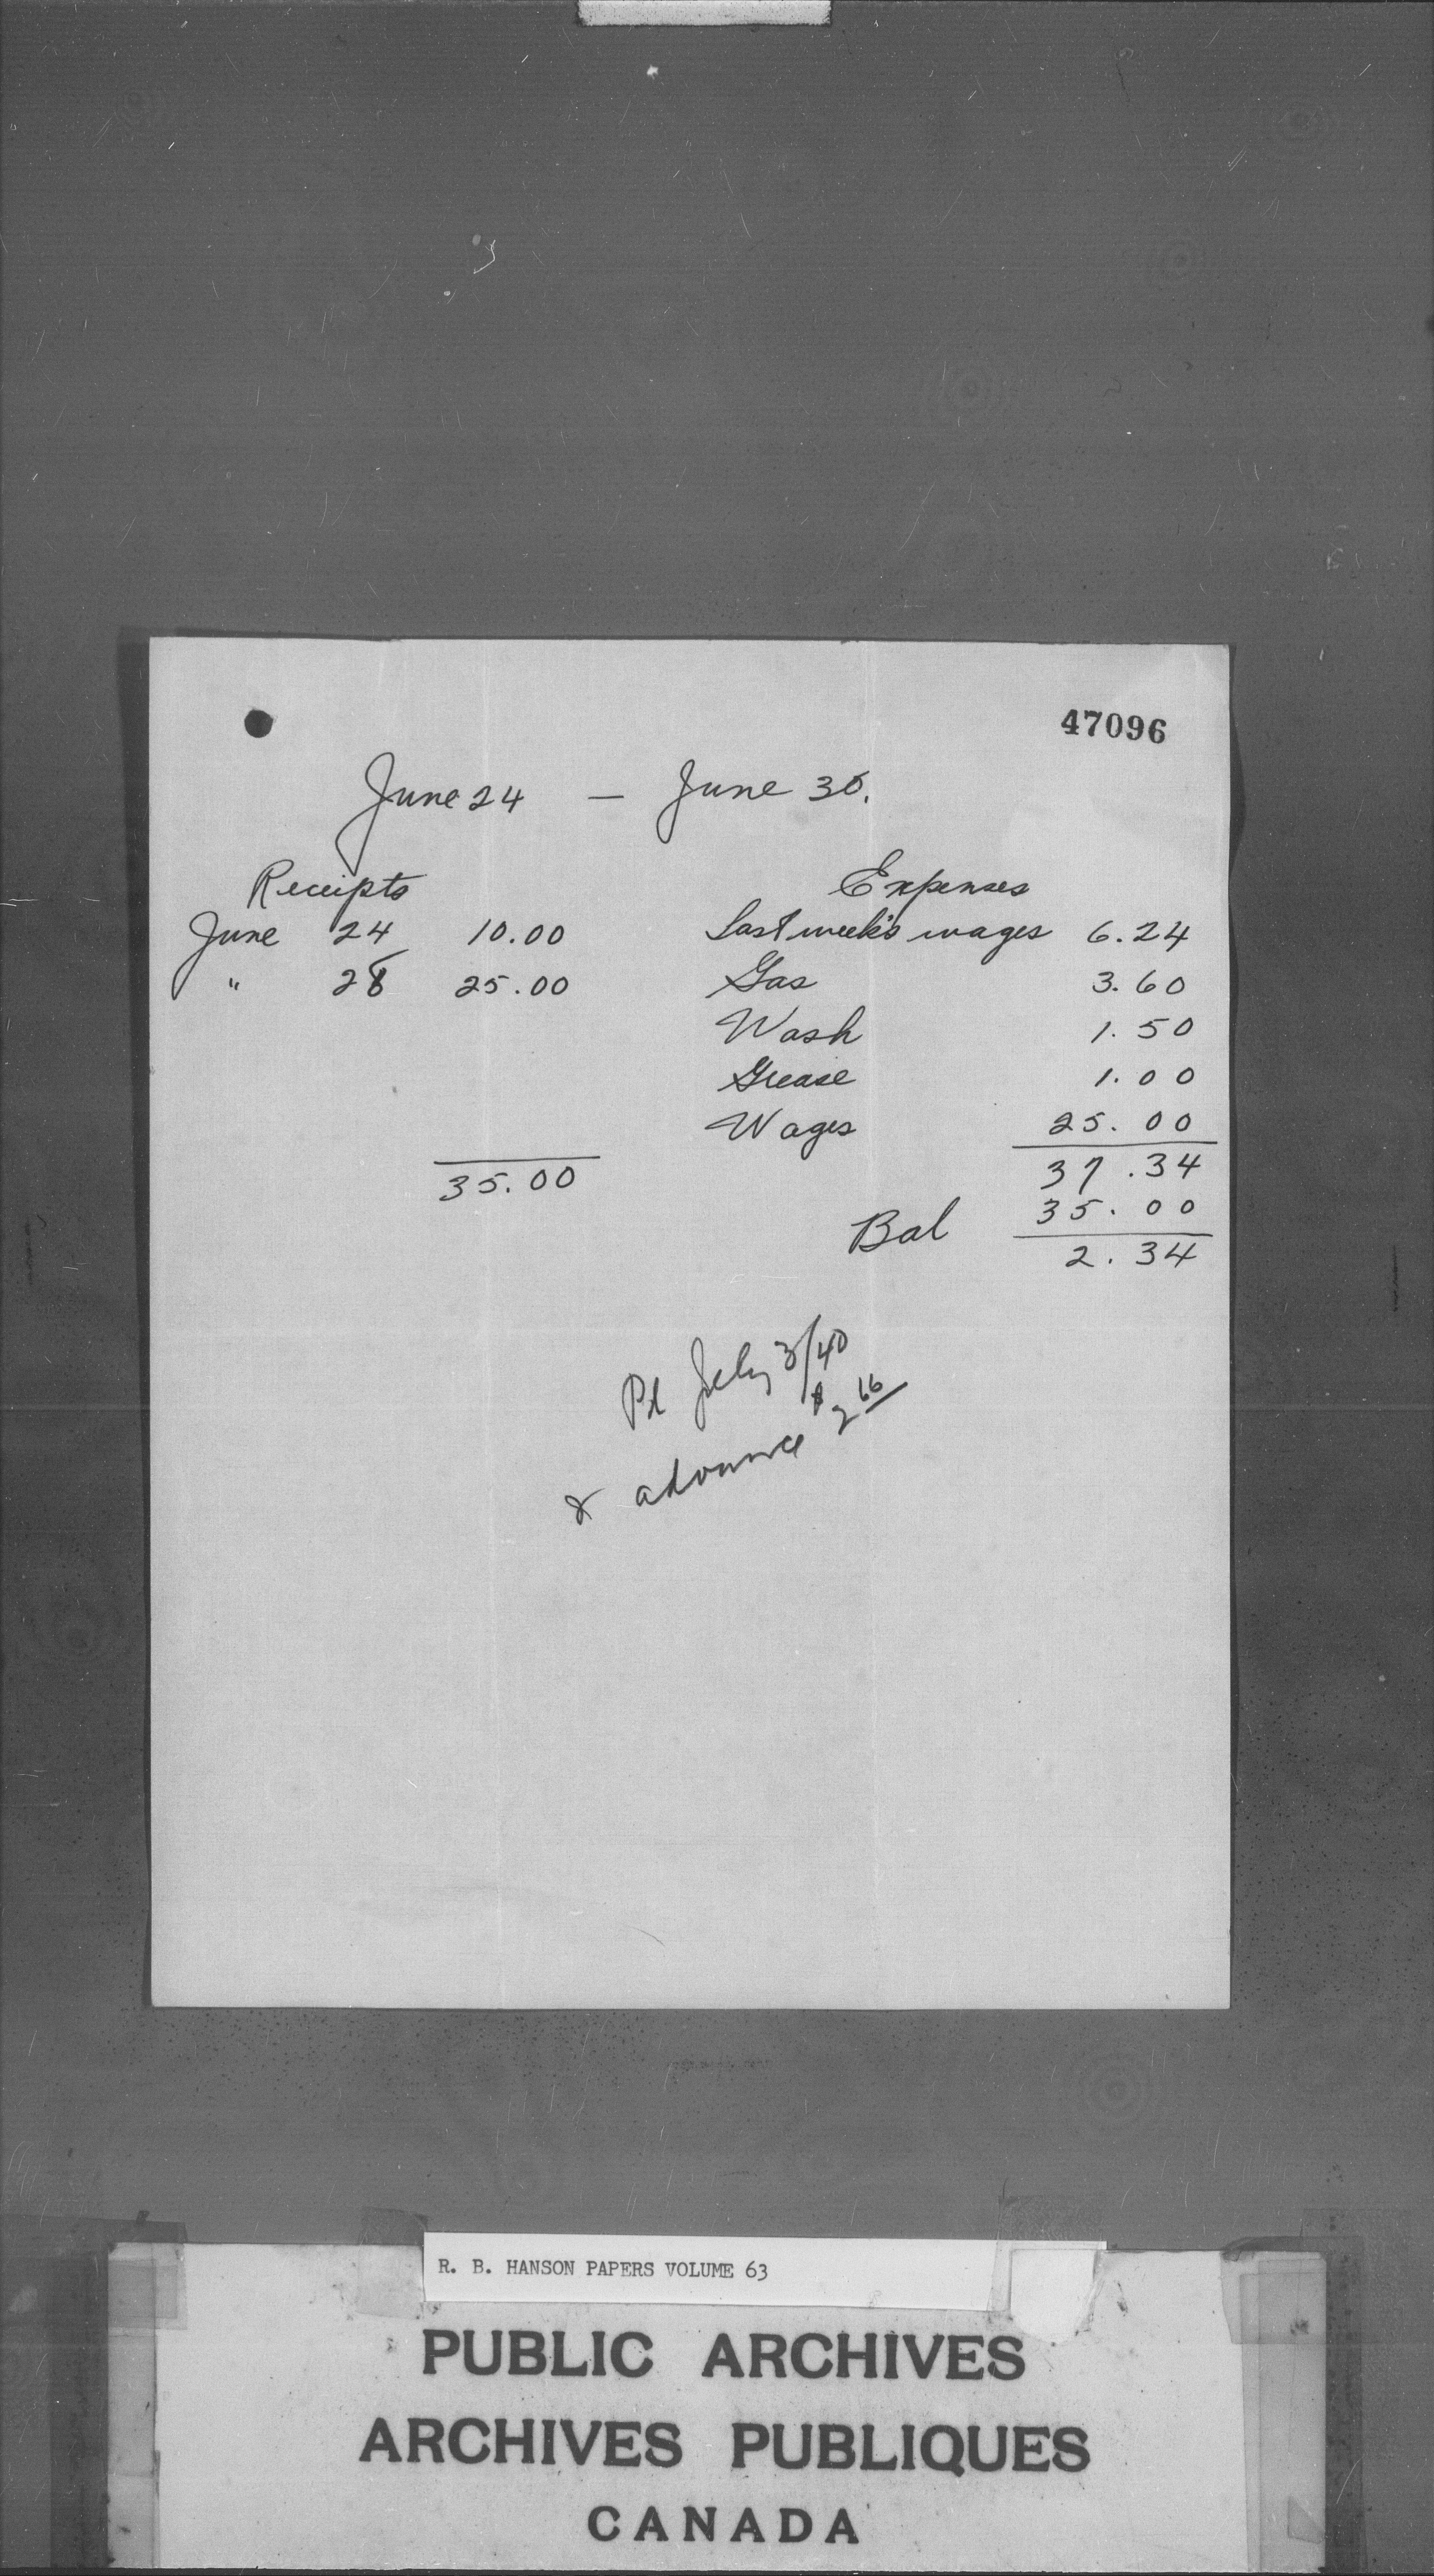 47096
June 24 — June 30.
Receipts Expenses
June 24 10.00 Last week's wages 6.24
" 28 25.00 Gas 3.60
Wash 1.50
Grease 1.00
Wages 25.00
35.00 37.34
35.00
Bal 2.34
Pd July 3/40
& advance $2 66
R. B. HANSON PAPERS VOLUME 63
PUBLIC ARCHIVES
ARCHIVES PUBLIQUES
CANADA